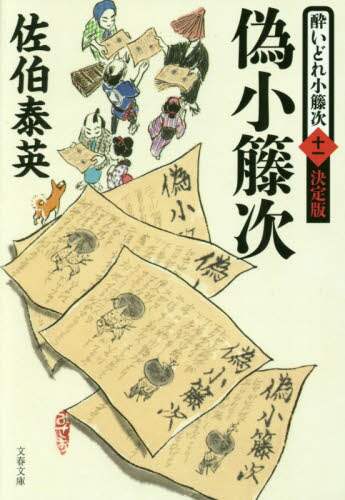 酔いどれ小籐次
十一
決定版
偽小籐次
佐伯泰英
偽小
偽
偽小籐次
偽小籐次
文春文庫